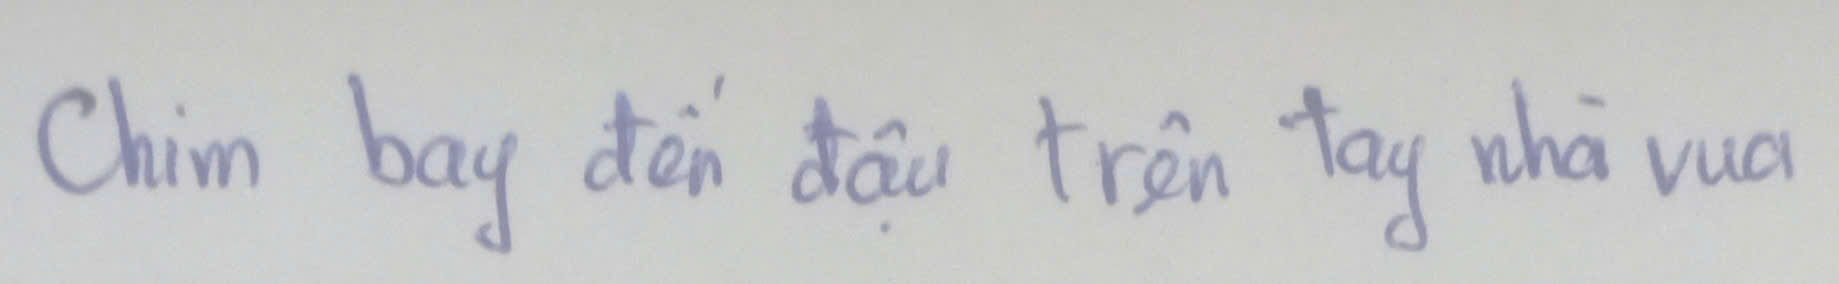 Chim bay đến đậu trên tay nhà vua